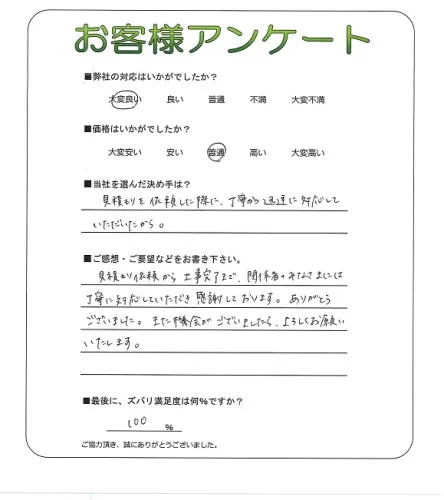 お客様アンケート
■弊社の対応はいかがでしたか?
大変良い 良い 普通 不満 大変不満
■価格はいかがでしたか?
大変安い 安い 普通 高い 大変高い
■当社を選んだ決め手は?
見積もりを依頼した際に、丁寧かつ迅速に対応して
いただいたから。
■ご感想・ご要望などをお書き下さい。
見積もり依頼から工事完了まで、関係者のみなさまには
丁寧に対応していただき感謝しております。ありがとう
ございました。また機会がございましたら、よろしくお願い
いたします。
■最後に、ズバリ満足度は何%ですか?
100 %
ご協力頂き、誠にありがとうございました。